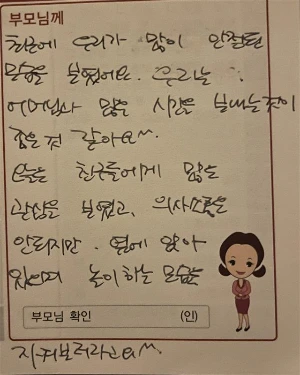 부모님께
최근에 우리가 많이 안정된
모습을 보였어요. 우리는
어머님과 많은 시간을 보내는것이
좋은것 같아요~.
요즘은 친구들에게 많은
관심을 보였고, 의사소통은
안되지만. 옆에 앉아
있으며 놀이하는 모습을
부모님 확인 (인)
지켜보더라고요~.